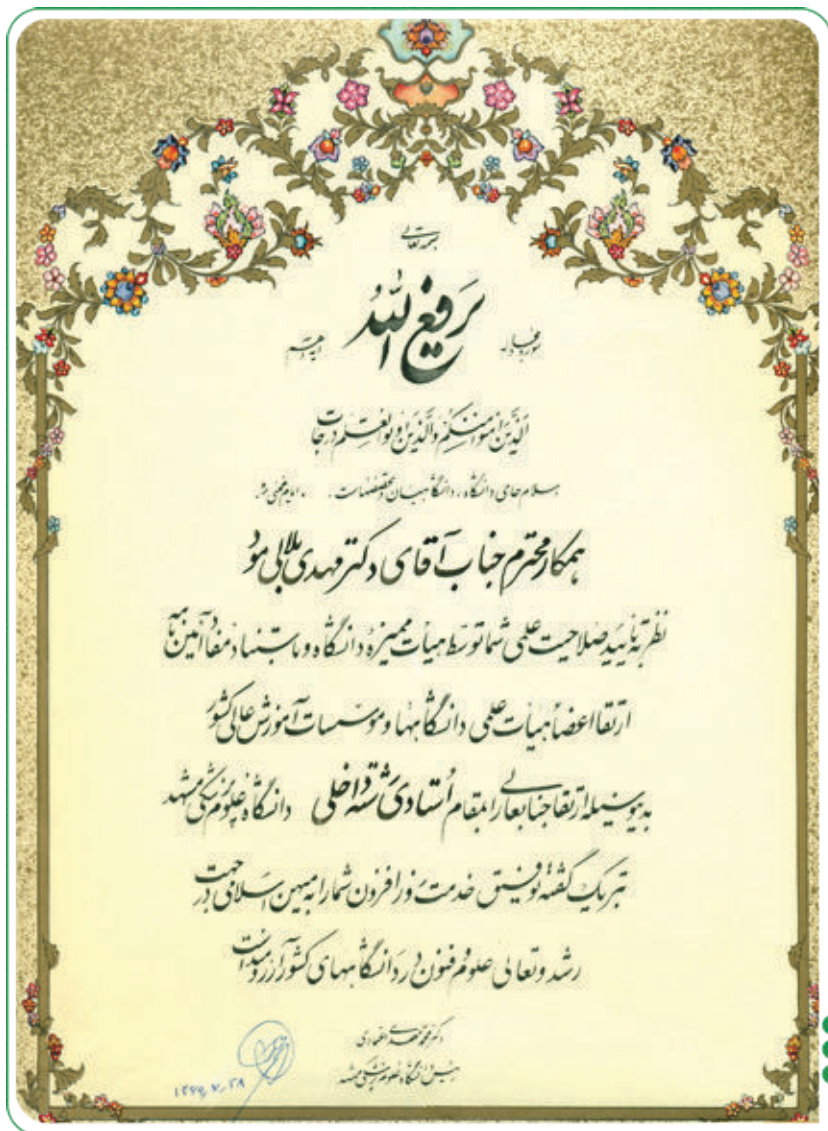 بسمه تعالی
یرفع الله
سوره مجادله
الذین امنوا منکم والذین اوتوا العلم درجات
اسلام حامی دانشگاه، دانشگاهیان و تحصیلات
همکار محترم جناب آقای دکتر مهدی بلالی مود
نظر به تایید صلاحیت علمی شما توسط هیات ممیزه دانشگاه و با استناد مفاد آئین نامه
ارتقا اعضا هیات علمی دانشگاهها و موسسات آموزش عالی کشور
بدینوسیله ارتقا جنابعالی را بمقام استادی رشته داخلی دانشگاه علوم پزشکی مشهد
تبریک گفته توفیق خدمت روز افزون شما را به میهن اسلامی در جهت
رشد و تعالی علوم و فنون در دانشگاههای کشور آرزومند است
دکتر محمد
رئیس دانشگاه علوم پزشکی مشهد